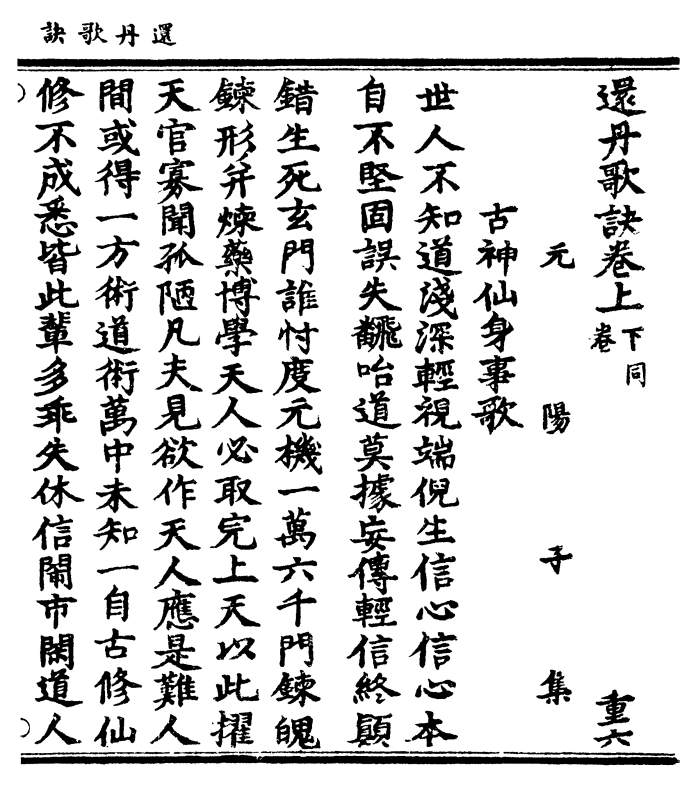 還丹歌訣
還丹歌訣卷上下卷同 重六
元陽子集
古神仙身事歌
世人不知道淺深輕視端倪生信心信心本
自不堅固誤失翻咍道莫據妄傳輕信終顛
錯生死玄門誰忖度元機一萬六千門鍊魄
鍊形并煉藥博學天人必取完上天以此擢
天官寡聞孤陋凡夫見欲作天人應是難人
間或得一方術道術萬中未知一自古修仙
修不成悉皆此輩多乖失休信鬧市閑道人